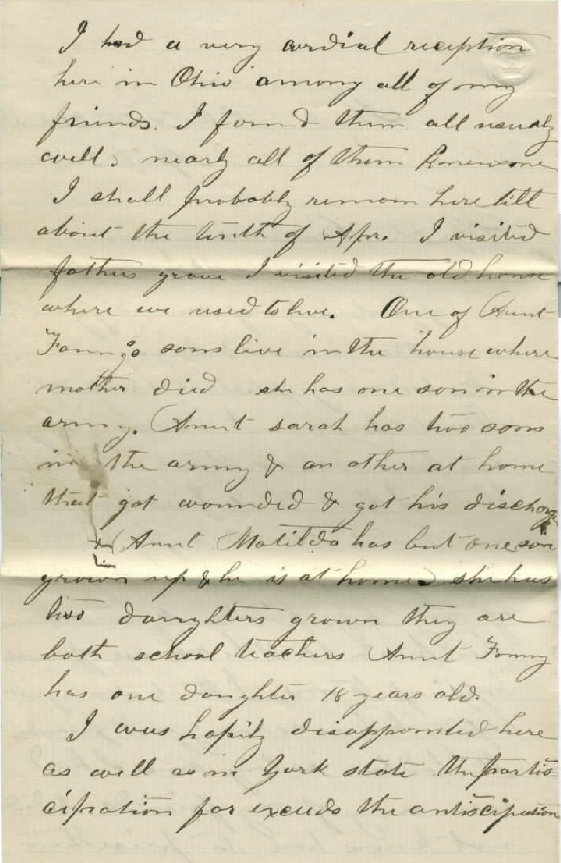 I had a very cordial reception
here in Ohio among all of my
friends. I found them all usualy
well, nearly all of them
I shall probably remain here till
about the tenth of Apr. I visited
fathers grave I visited the old house
where we used to live. One of Aunt
Fannys sons live in the house where
mother died she has one son in the
army. Aunt sarah has two sons
in the army & an other at home
that got wounded & got his discharge
Aunt Matilda has but one son
grown up & he is at home, she has
two daughters grown they are
both school teachers Aunt Fanny
has one daughter 18 years old.
I was hapily disappointed here
as well as in York state the partis
cipation far exceeds the antiscipation